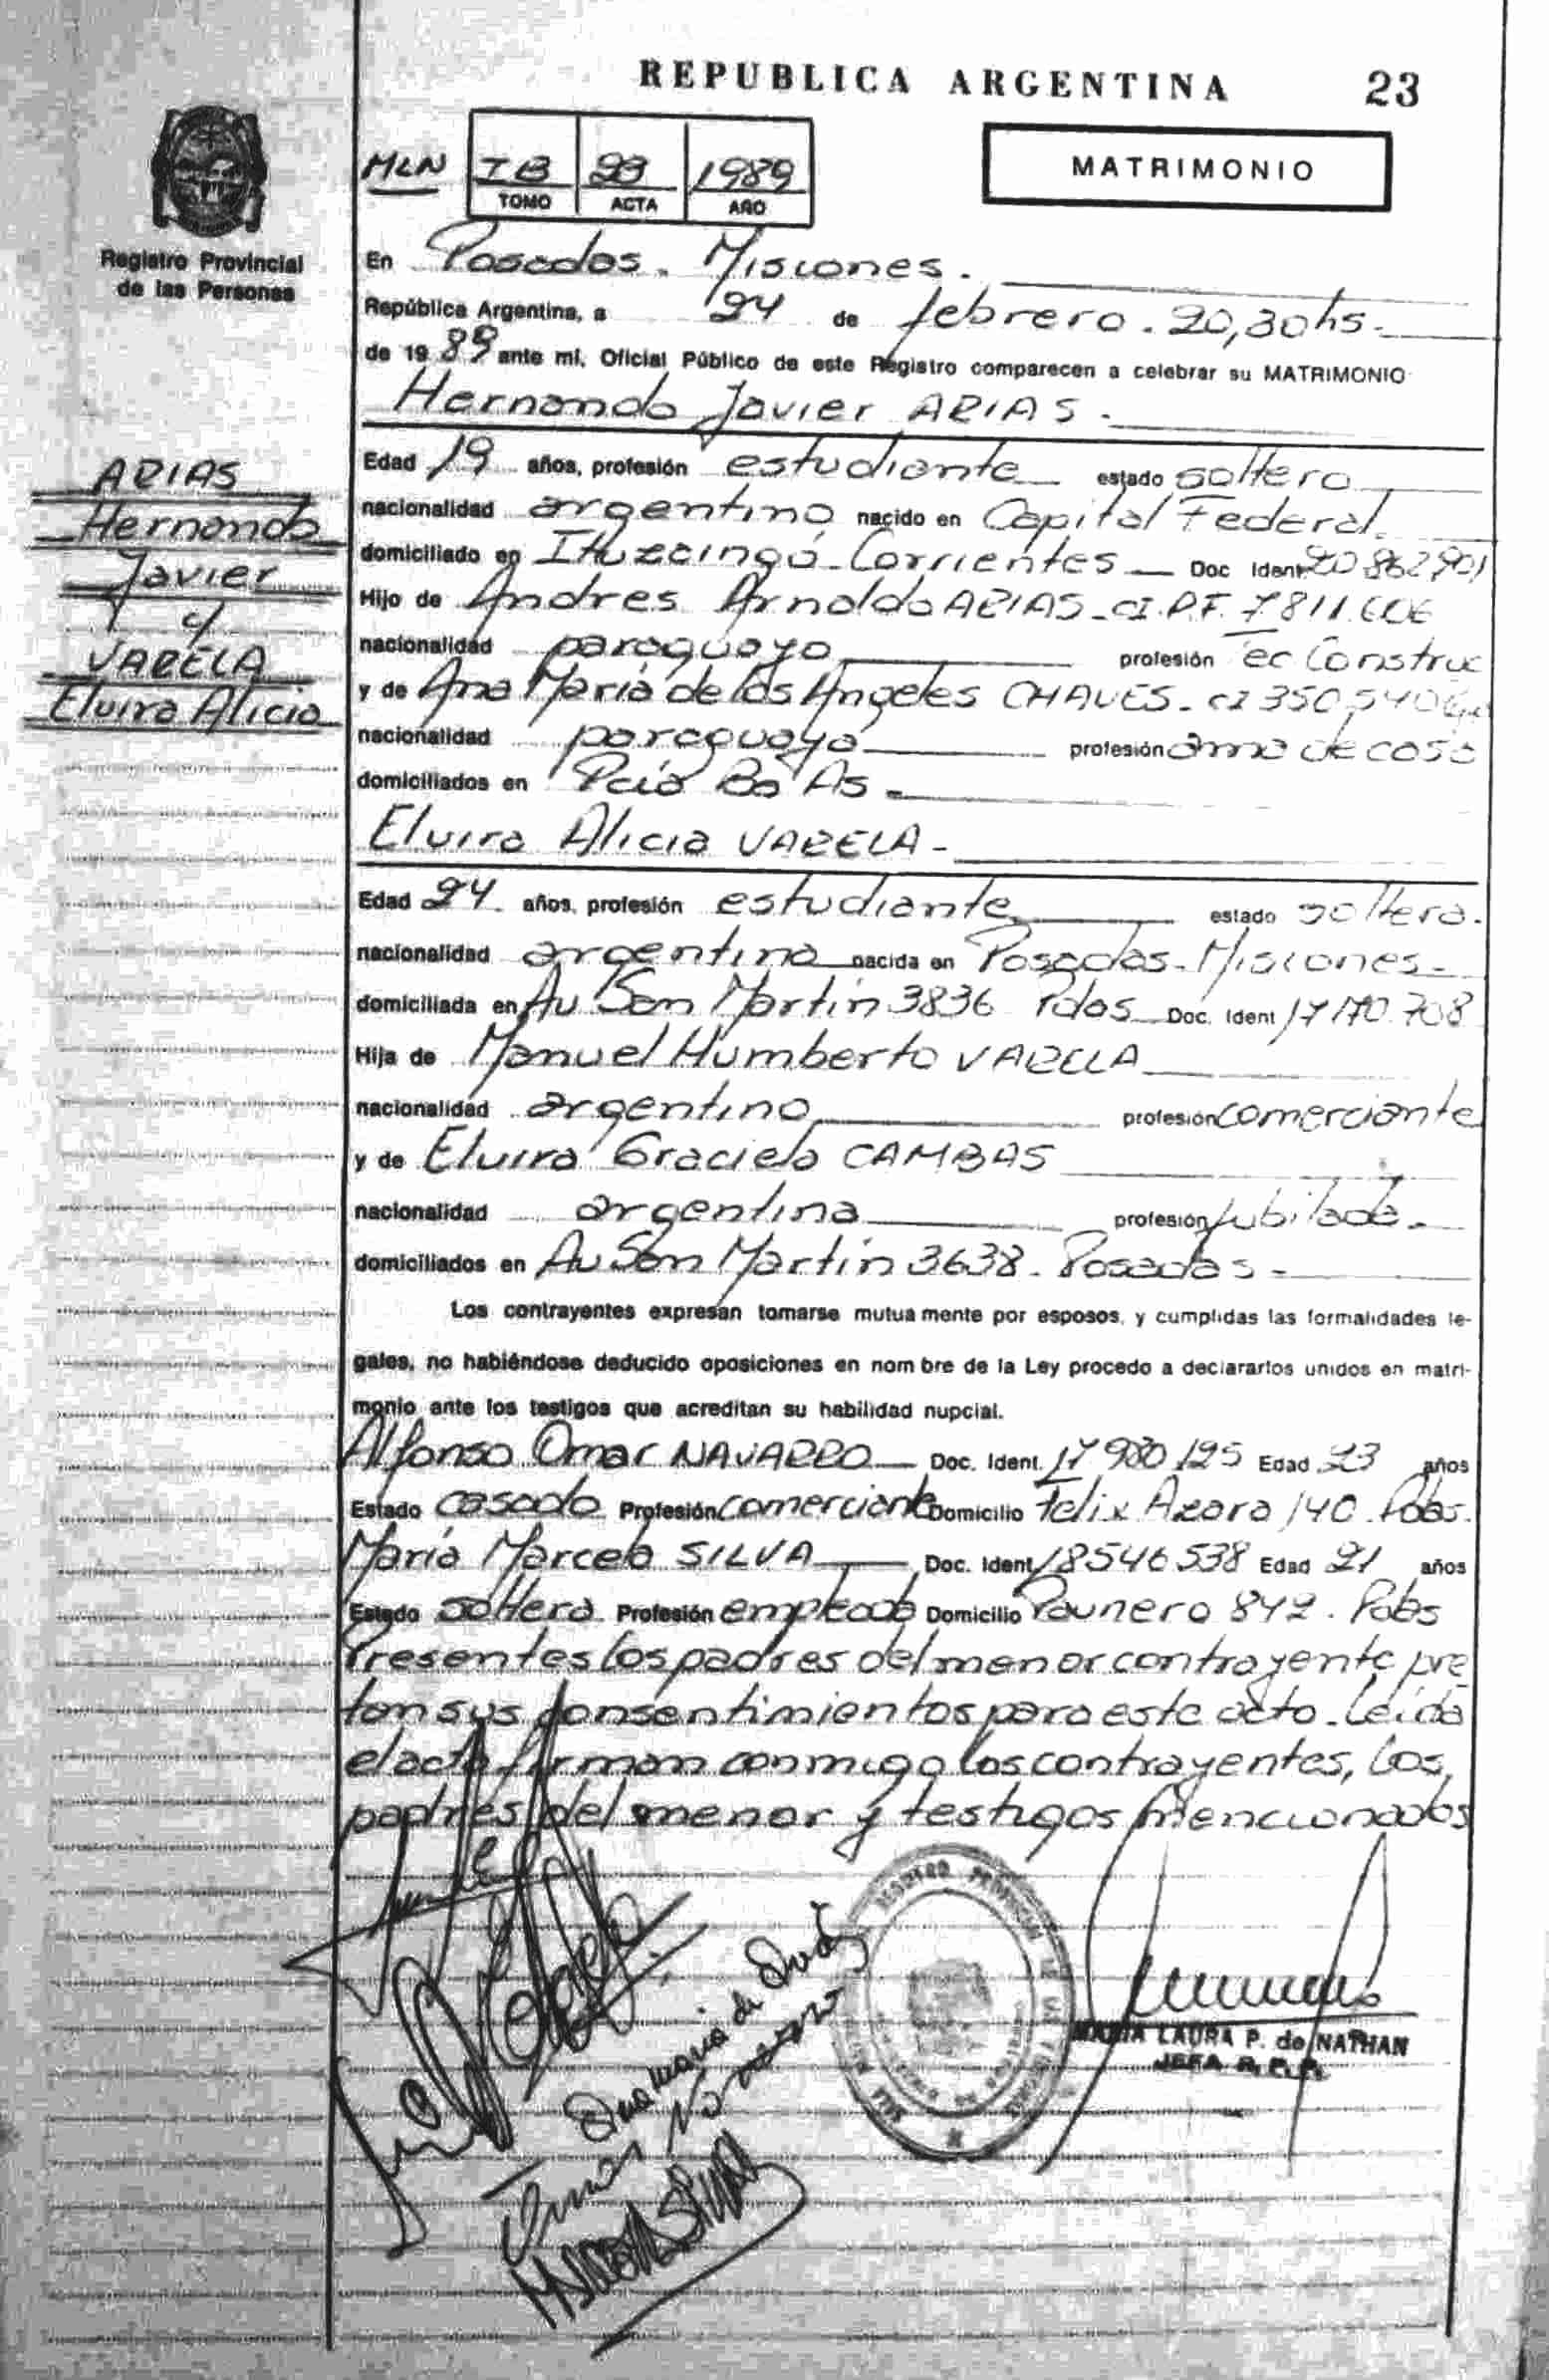 REPUBLICA ARGENTINA 23
MATRIMONIO
MLN TB 23 1989
TOMO ACTA AÑO
Registro Provincial
de las Personas
En Posadas. Misiones.
República Argentina, a 24 de febrero. 20,30hs.
de 1989 ante mi, Oficial Público de este Registro comparecen a celebrar su MATRIMONIO
Hernando Javier ARIAS.
ARIAS
Hernando
Javier
y
VARELA
Elvira Alicia
Edad 19 años, profesión estudiante estado soltero
nacionalidad argentino nacido en Capital Federal.
domiciliado en Ituzaingó-Corrientes Doc Ident 20.862.901
Hijo de Andres Arnoldo ARIAS-CI.P.F. 7811.606
nacionalidad paraguayo profesión Tec Construc
y de Ana María de los Angeles CHAVES. CI 350.540
nacionalidad paraguaya profesión ama de casa
domiciliados en Pcia Bs As
Elvira Alicia VARELA-
Edad 24 años, profesión estudiante estado soltera.
nacionalidad argentina nacida en Posadas-Misiones-
domiciliada en Av San Martín 3836 Pdas Doc. Ident 17170.708
Hija de Manuel Humberto VARELA
nacionalidad argentino profesión comerciante
y de Elvira Graciela CAMBAS
nacionalidad argentina profesión jubilada.
domiciliados en Av San Martín 3638. Posadas-
Los contrayentes expresan tomarse mutuamente por esposos, y cumplidas las formalidades le-
gales, no habiéndose deducido oposiciones en nombre de la Ley procedo a declararlos unidos en matri-
monio ante los testigos que acreditan su habilidad nupcial.
Alfonso Omar NAVARRO Doc. Ident. 17 980 125 Edad 23 años
Estado casado Profesión comerciante Domicilio Felix Azara 140. Pdas.
María Marcela SILVA Doc. Ident 18546538 Edad 21 años
Estado soltera Profesión empleada Domicilio Paunero 842. Pdas
Presentes los padres del menor contrayente pre
tan sus consentimientos para este acto. Leída
el acta firman conmigo los contrayentes, los
padres del menor y testigos mencionados
MARIA LAURA P. de NATHAN
JEFA R.P.P.